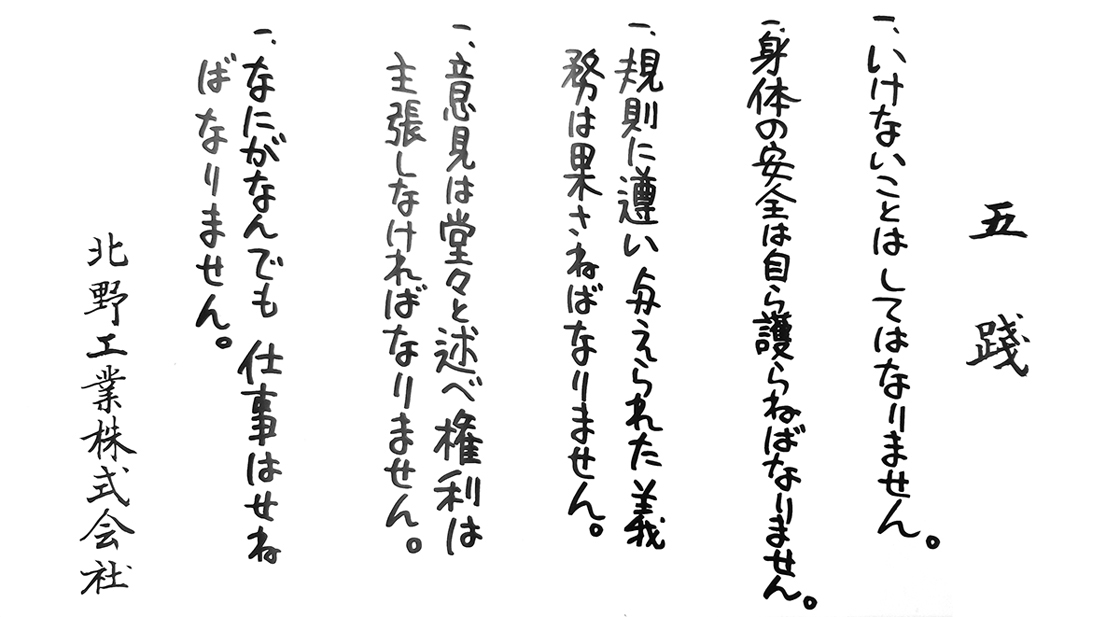 五践
一、いけないことはしてはなりません。
一、身体の安全は自ら護らねばなりません。
一、規則に遵い与えられた義
務は果さねばなりません。
一、意見は堂々と述べ権利は
主張しなければなりません。
一、なにがなんでも仕事はせね
ばなりません。
北野工業株式会社